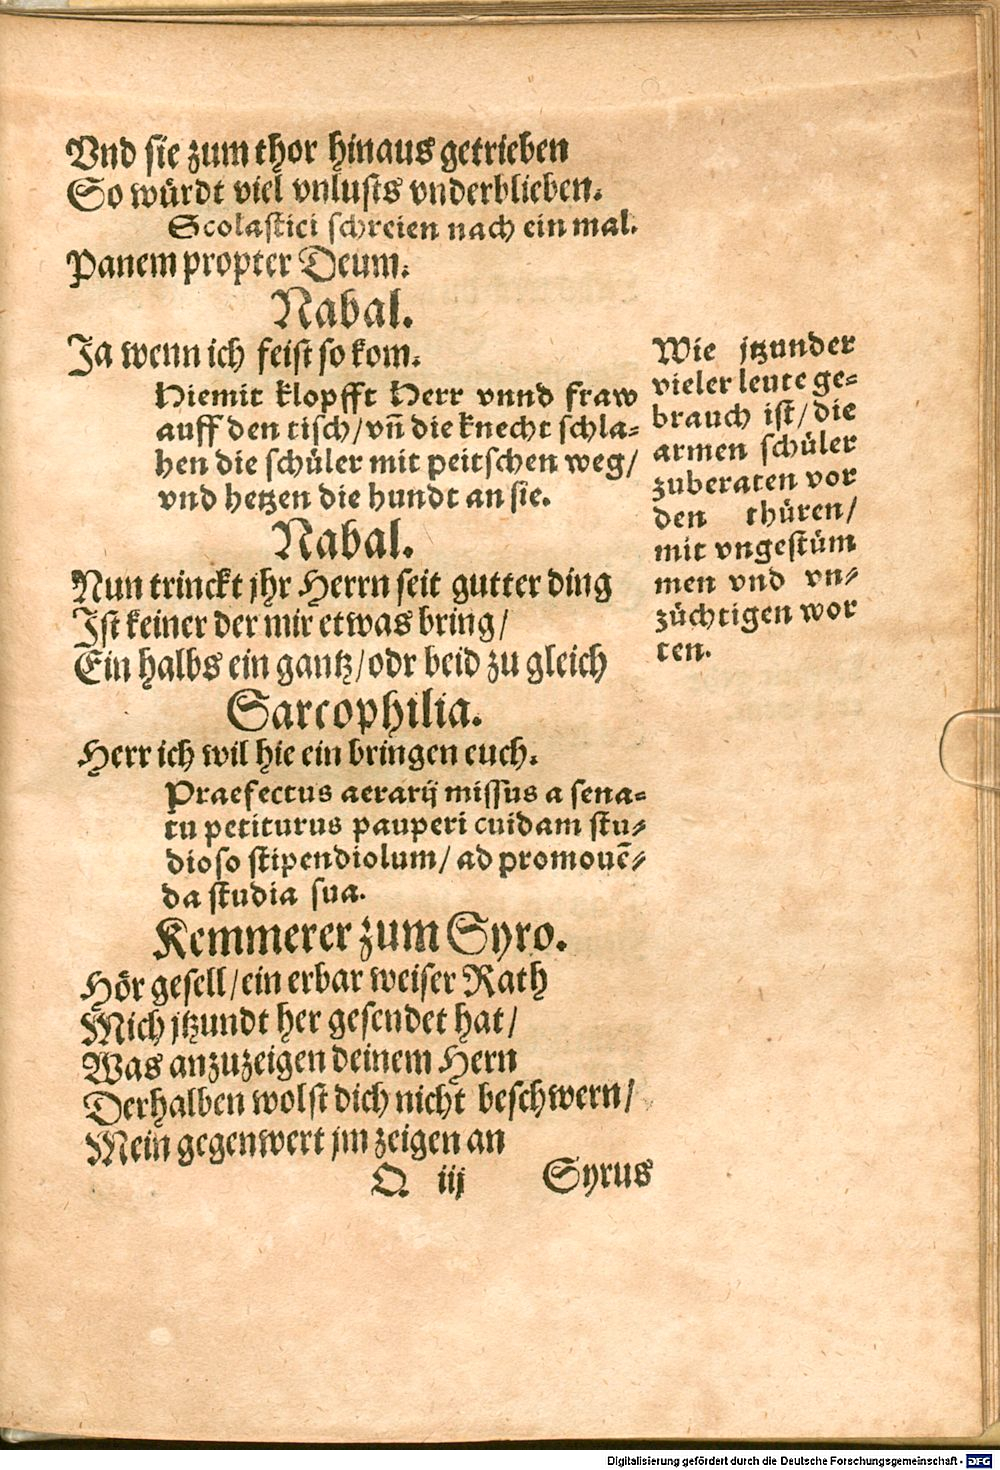 Vnd sie zum thor hinaus getrieben
So würdt viel vnlusts vnderblieben.
Scolastici schreien nach ein mal.
Panem propter Deum.
Nabal.
Ja wenn ich feist so kom.
Hiemit klopfft Herr vnnd fraw
auff den tisch/vñ die knecht schla-
hen die schüler mit peitschen weg/
vnd hetzen die hundt an sie.
Nabal.
Nun trinckt jhr Herrn seit gutter ding
Ist keiner der mir etwas bring/
Ein halbs ein gantz/odr beid zu gleich
Sarcophilia.
Herr ich wil hie ein bringen euch.
Praefectus aerarij missus a sena-
tu petiturus pauperi cuidam stu-
dioso stipendiolum/ ad promouẽ-
da studia sua.
Kemmerer zum Syro.
Hör gesell/ein erbar weiser Rath
Mich jtzundt her gesendet hat/
Was anzuzeigen deinem Hern
Derhalben wolst dich nicht beschwern/
Mein gegenwert jm zeigen an
Q iij Syrus
Wie jtzunder
vieler leute ge-
brauch ist/die
armen schüler
zuberaten vor
den thüren/
mit vngestüm
men vnd vn-
züchtigen wor
ten.
Digitalisierung gefördert durch die Deutsche Forschungsgemeinschaft - DFG